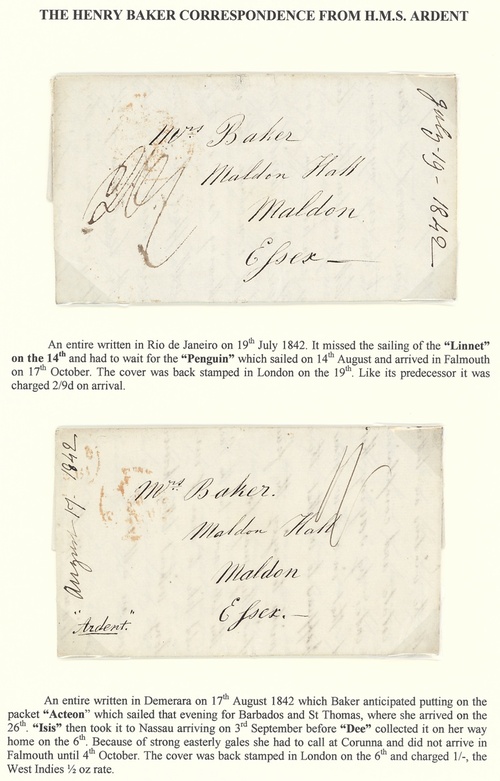 THE HENRY BAKER CORRESPONDENCE FROM H.M.S. ARDENT
July-19-1842
Mrs Baker
Maldon Hall
Maldon
Essex
An entire written in Rio de Janeiro on 19th July 1842. It missed the sailing of the "Linnet"
on the 14th and had to wait for the "Penguin" which sailed on 14th August and arrived in Falmouth
on 17th October. The cover was back stamped in London on the 19th. Like its predecessor it was
charged 2/9d on arrival.
August-17. 1842
Mrs Baker.
Maldon Hall
Maldon
Essex.-
"Ardent."
An entire written in Demerara on 17th August 1842 which Baker anticipated putting on the
packet "Acteon" which sailed that evening for Barbados and St Thomas, where she arrived on the
26th. "Isis" then took it to Nassau arriving on 3rd September before "Dee" collected it on her way
home on the 6th. Because of strong easterly gales she had to call at Corunna and did not arrive in
Falmouth until 4th October. The cover was back stamped in London on the 6th and charged 1/-, the
West Indies ½ oz rate.